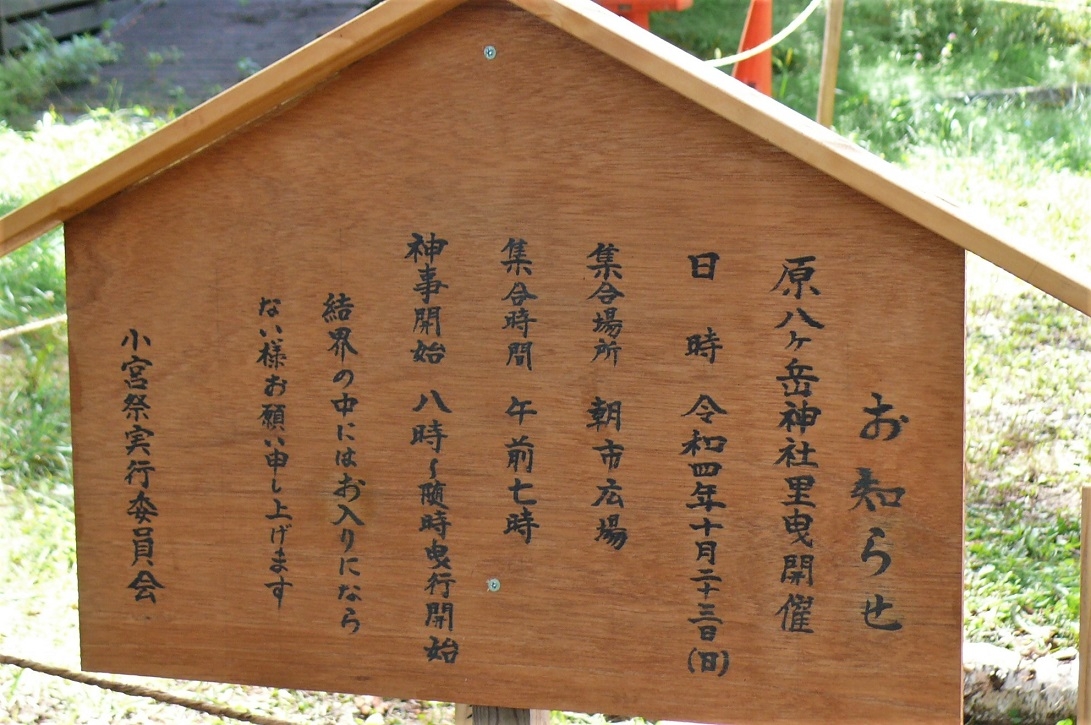 お知らせ
原八ヶ岳神社里曳開催
日　時　令和四年十月二十三日(日)
集合場所　朝市広場
集合時間　午前七時
神事開始　八時～随時曳行開始
結界の中にはお入りになら
ない様お願い申し上げます
小宮祭実行委員会